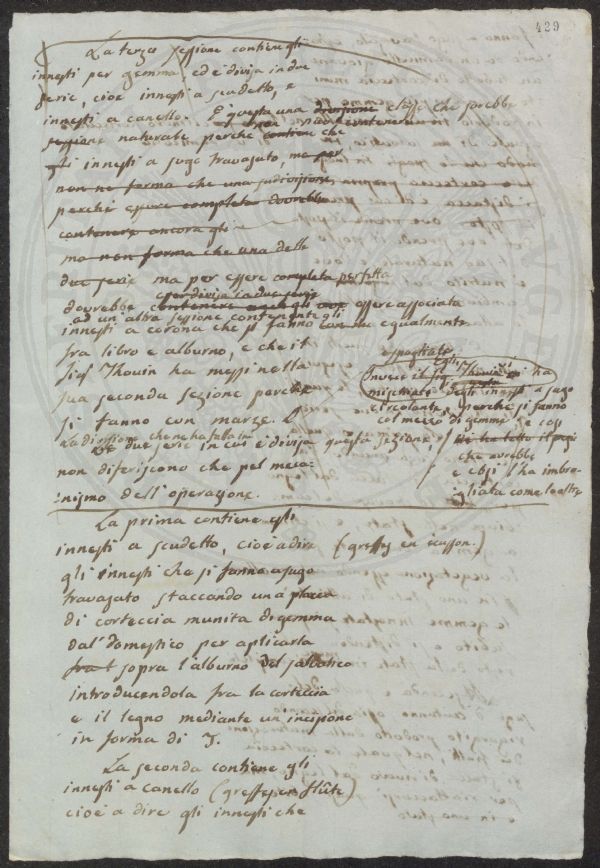 429
La terza sessione contiene gli
innesti per gemma, ed è divisa in due
serie, cioè innesti a scudetto, e
innesti a canello. E questa una divisione che sarebbe
sessione naturale perché contien che
gli innesti a sugo travasato, ma per
non ne forma che una sudivisione,
perché essere completa dovrebbe
contenere ancora gli
ma non forma che una delle
due serie ma per essere completa perfetta
esser divisa in due serie
dovrebbe contenere anche gli essere associata
ad un'altra sessione contenente gli
innesti a corona che si fanno egualmente
fra libro e alburno, e che il
Sig.r Thouin ha messi nella
sua seconda sezione perché
si fanno con marze.
La divisione che ne ha fatta in
Le due serie in cui è divisa questa sezione,
non diferiscono che pel meca-
nismo dell'operazione.
e spogliato
Invece il Sig. Thouin gli ha
mischiati degli innesti a sugo
circolante, perché si fanno
col mezzo di gemme, e così
che avrebbe
e così l'ha imbro-
gliata come le altre
La prima contiene gli
innesti a scudetto, cioè a dire (greffes en écusson.)
gli innesti che si fanno a sugo
travasato staccando una placca
di corteccia munita di gemma
dal domestico per aplicarla
fra l sopra l'alburno del salvatico
introducendola fra la corteccia
e il legno mediante un'incisione
in forma di T.
La seconda contiene gli
innesti a canello (greffes en flûte)
cioè a dire gli innesti che